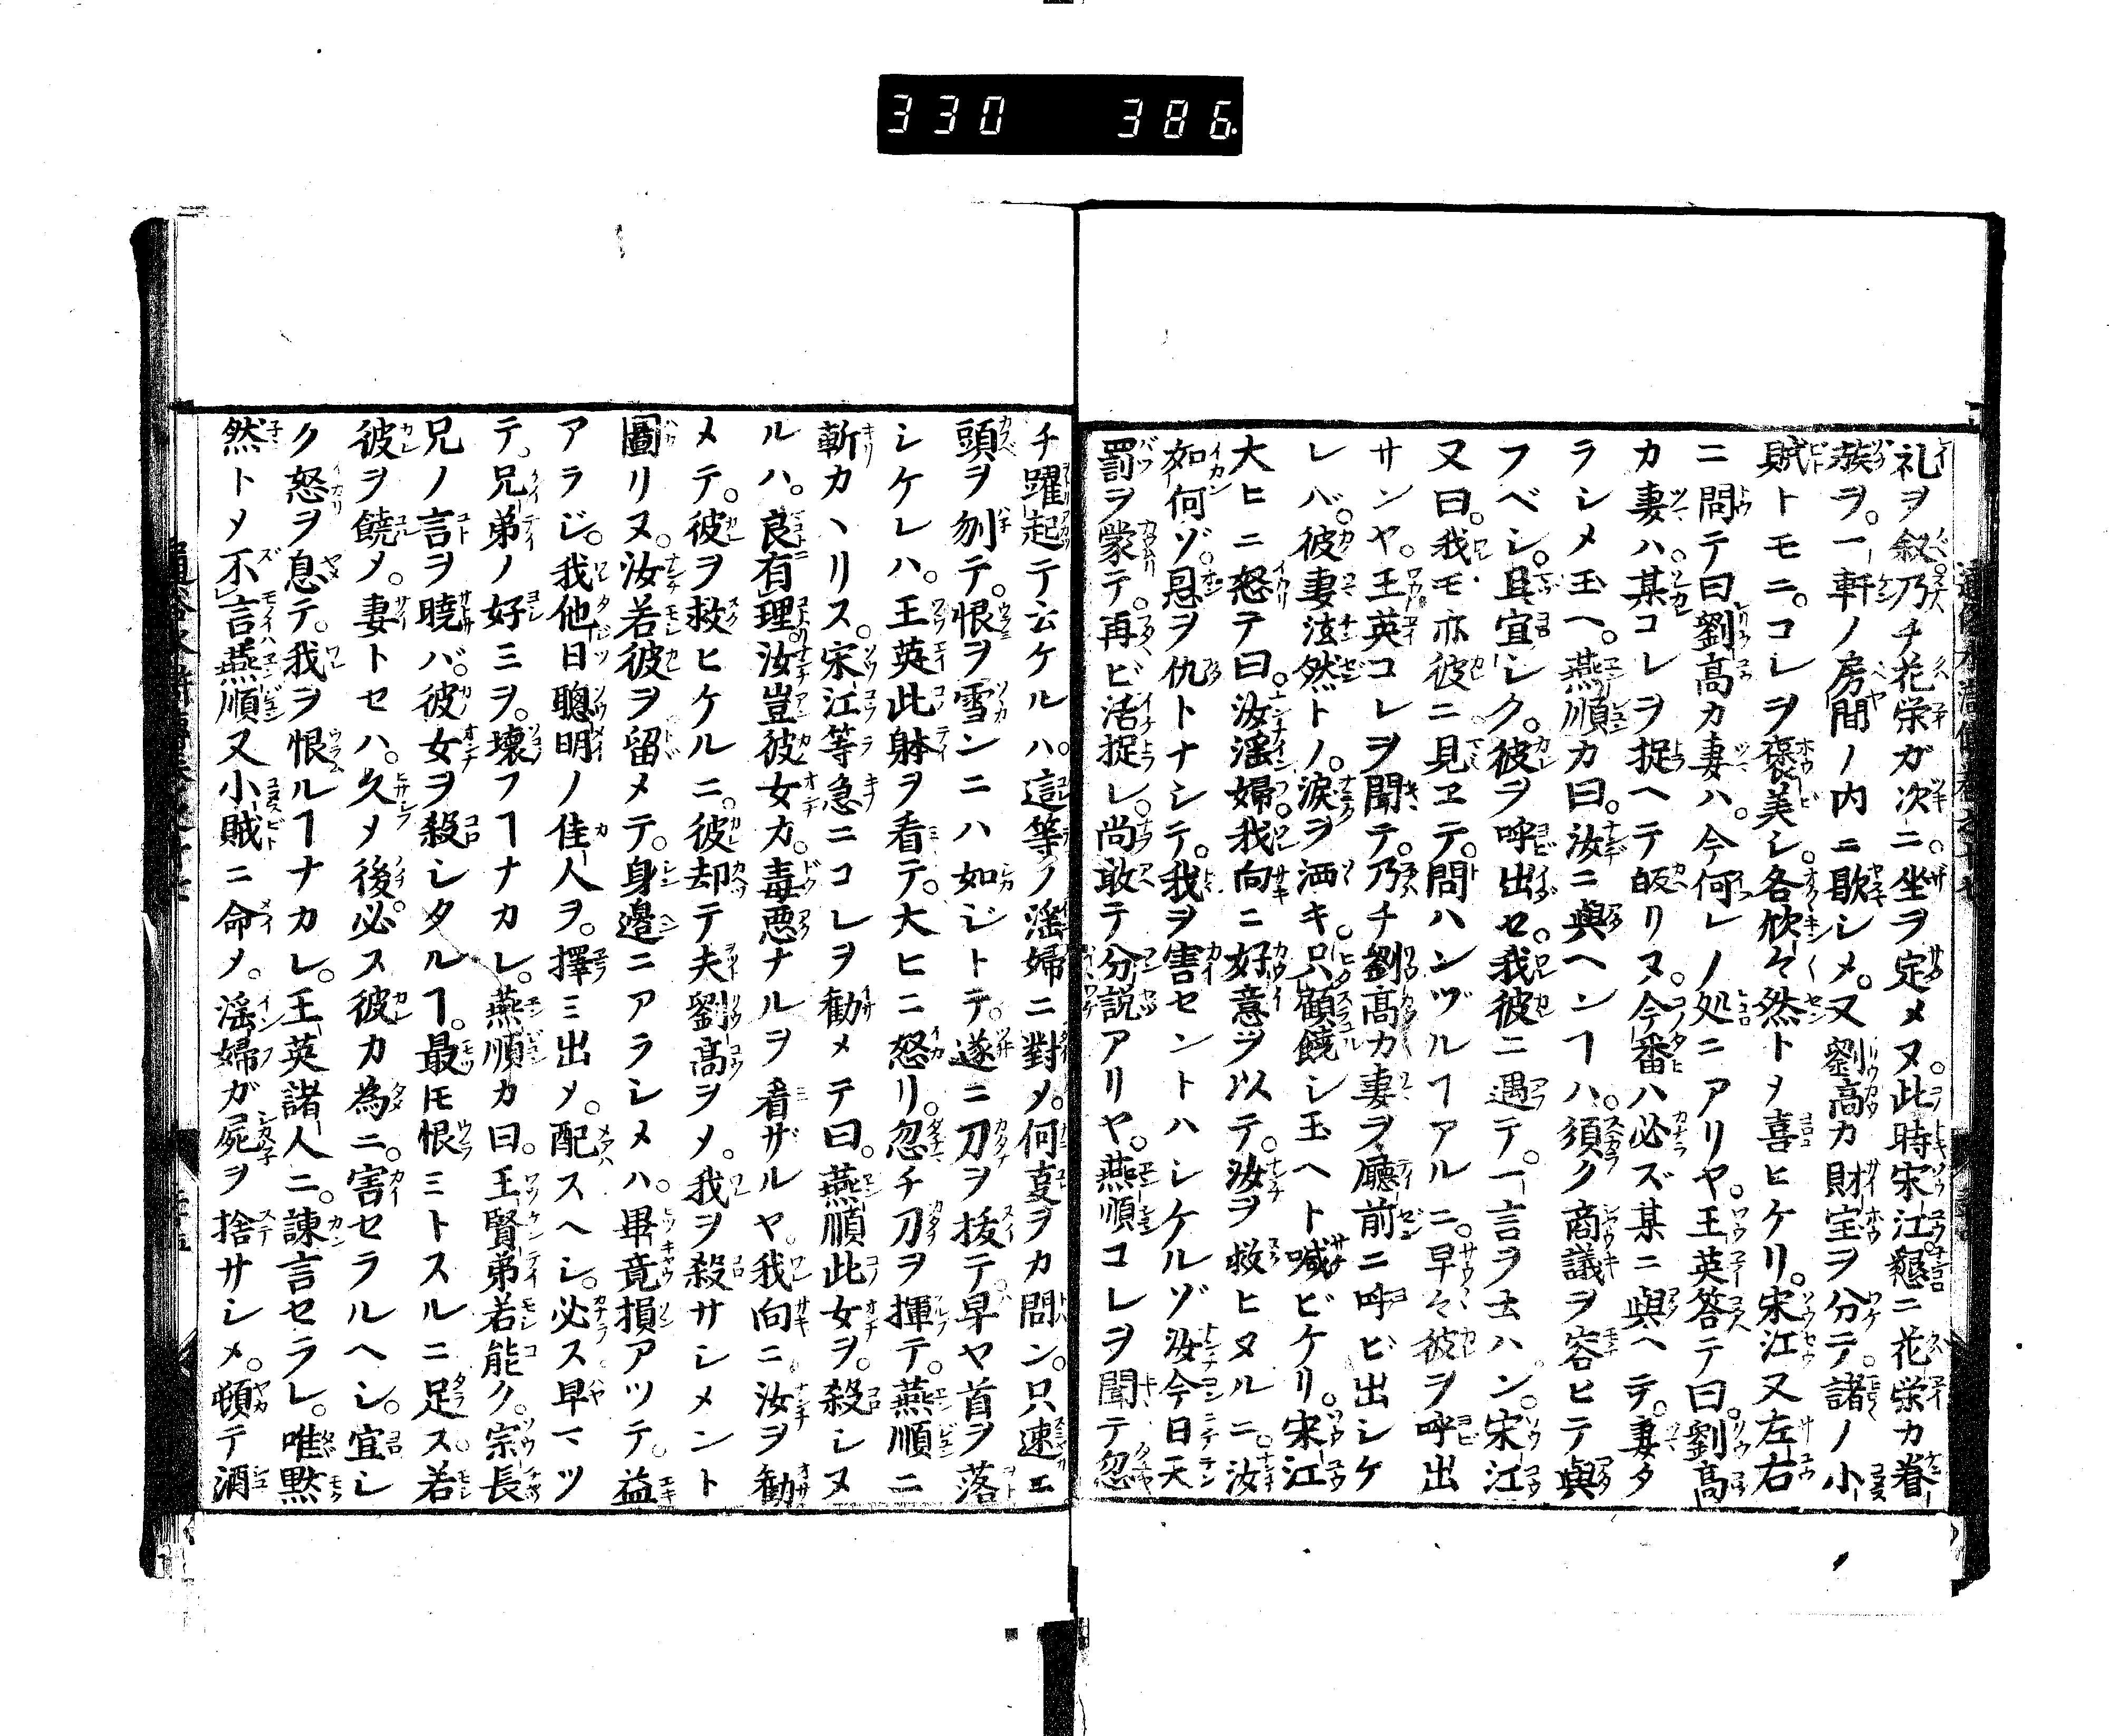 330 386
礼ヲ叙乃チ花栄ガ次ニ。坐ヲ定メヌ。此時宋江。懇ニ花栄カ眷
族ヲ。一軒ノ房間ノ内ニ歇シメ。又劉高カ財宝ヲ分テ。諸ノ小
賊トモニ。コレヲ褒美シ。各欣々然トメ喜ヒケリ。宋江又左右
ニ問テ曰劉高カ妻ハ。今何レノ処ニアリヤ。王英答テ曰。劉高
カ妻ハ。某コレヲ捉ヘテ皈リヌ。今番ハ必ズ某ニ與ヘテ。妻タ
ラシメ玉ヘ。燕順カ曰。汝ニ與ヘンヿハ。須ク商議ヲ容ヒテ與
フベシ。且宜シク。彼ヲ呼出セ。我彼ニ遇テ。一言ヲ云ハン。宋江
又曰。我モ亦彼ニ見ヱテ。問ハンヅルヿアルニ。早々彼ヲ呼出
サンヤ。王英コレヲ聞テ。乃チ劉高カ妻ヲ廳前ニ呼ビ出シケ
レバ。彼妻泫然トノ。涙ヲ洒キ。只顧饒シ玉ヘト喊ビケリ。宋江
大ヒニ怒テ曰。汝滛婦我向ニ好意ヲ以テ。汝ヲ救ヒタルニ。汝
如何ゾ。恩ヲ仇トナシテ。我ヲ害セントハシケルゾ汝今日天
罰ヲ蒙テ。再ビ活捉レ。尚敢テ分説アリヤ。燕順コレヲ聞テ忽
チ躍起テ云ケルハ。這等ノ滛婦ニ對メ。何夏ヲカ問ン。只速ニ
頭ヲ刎テ。恨ヲ雪ンニハ如ジトテ。遂ニ刀ヲ抜テ。早ヤ首ヲ落
シケレハ。王英此躰ヲ看テ。大ヒニ怒リ。忽チ刀ヲ揮テ。燕順ニ
斬カヽリス。宋江等急ニコレヲ勸メテ曰。燕順此女ヲ。殺シヌ
ルハ。良有理。汝豈彼女カ。毒悪ナルヲ看ザルヤ。我向ニ汝ヲ勧
メテ。彼ヲ救ヒケルニ。彼却テ夫劉高ヲメ。我ヲ殺サシメント
圖リヌ。汝若彼ヲ留メテ。身邊ニアラシメハ。畢竟損アツテ。益
アラジ。我他日聰明ノ佳人ヲ。擇ミ出メ。配スヘシ。必ス早マツ
テ。兄弟ノ好ミヲ。壊フヿナカレ。燕順カ曰。王賢弟若能ク。宗長
兄ノ言ヲ曉バ。彼女ヲ殺シタルヿ。最モ恨ミトスルニ足ス。若
彼ヲ饒メ。妻トセハ。久メ後必ス彼カ為ニ。害セラルヘシ。宜シ
ク怒ヲ息テ。我ヲ恨ルヿナカレ。王英諸人ニ。諫言セラレ。唯黙
然トメ不言燕順又小賊ニ命メ。滛婦ガ屍ヲ捨サシメ。頓テ酒